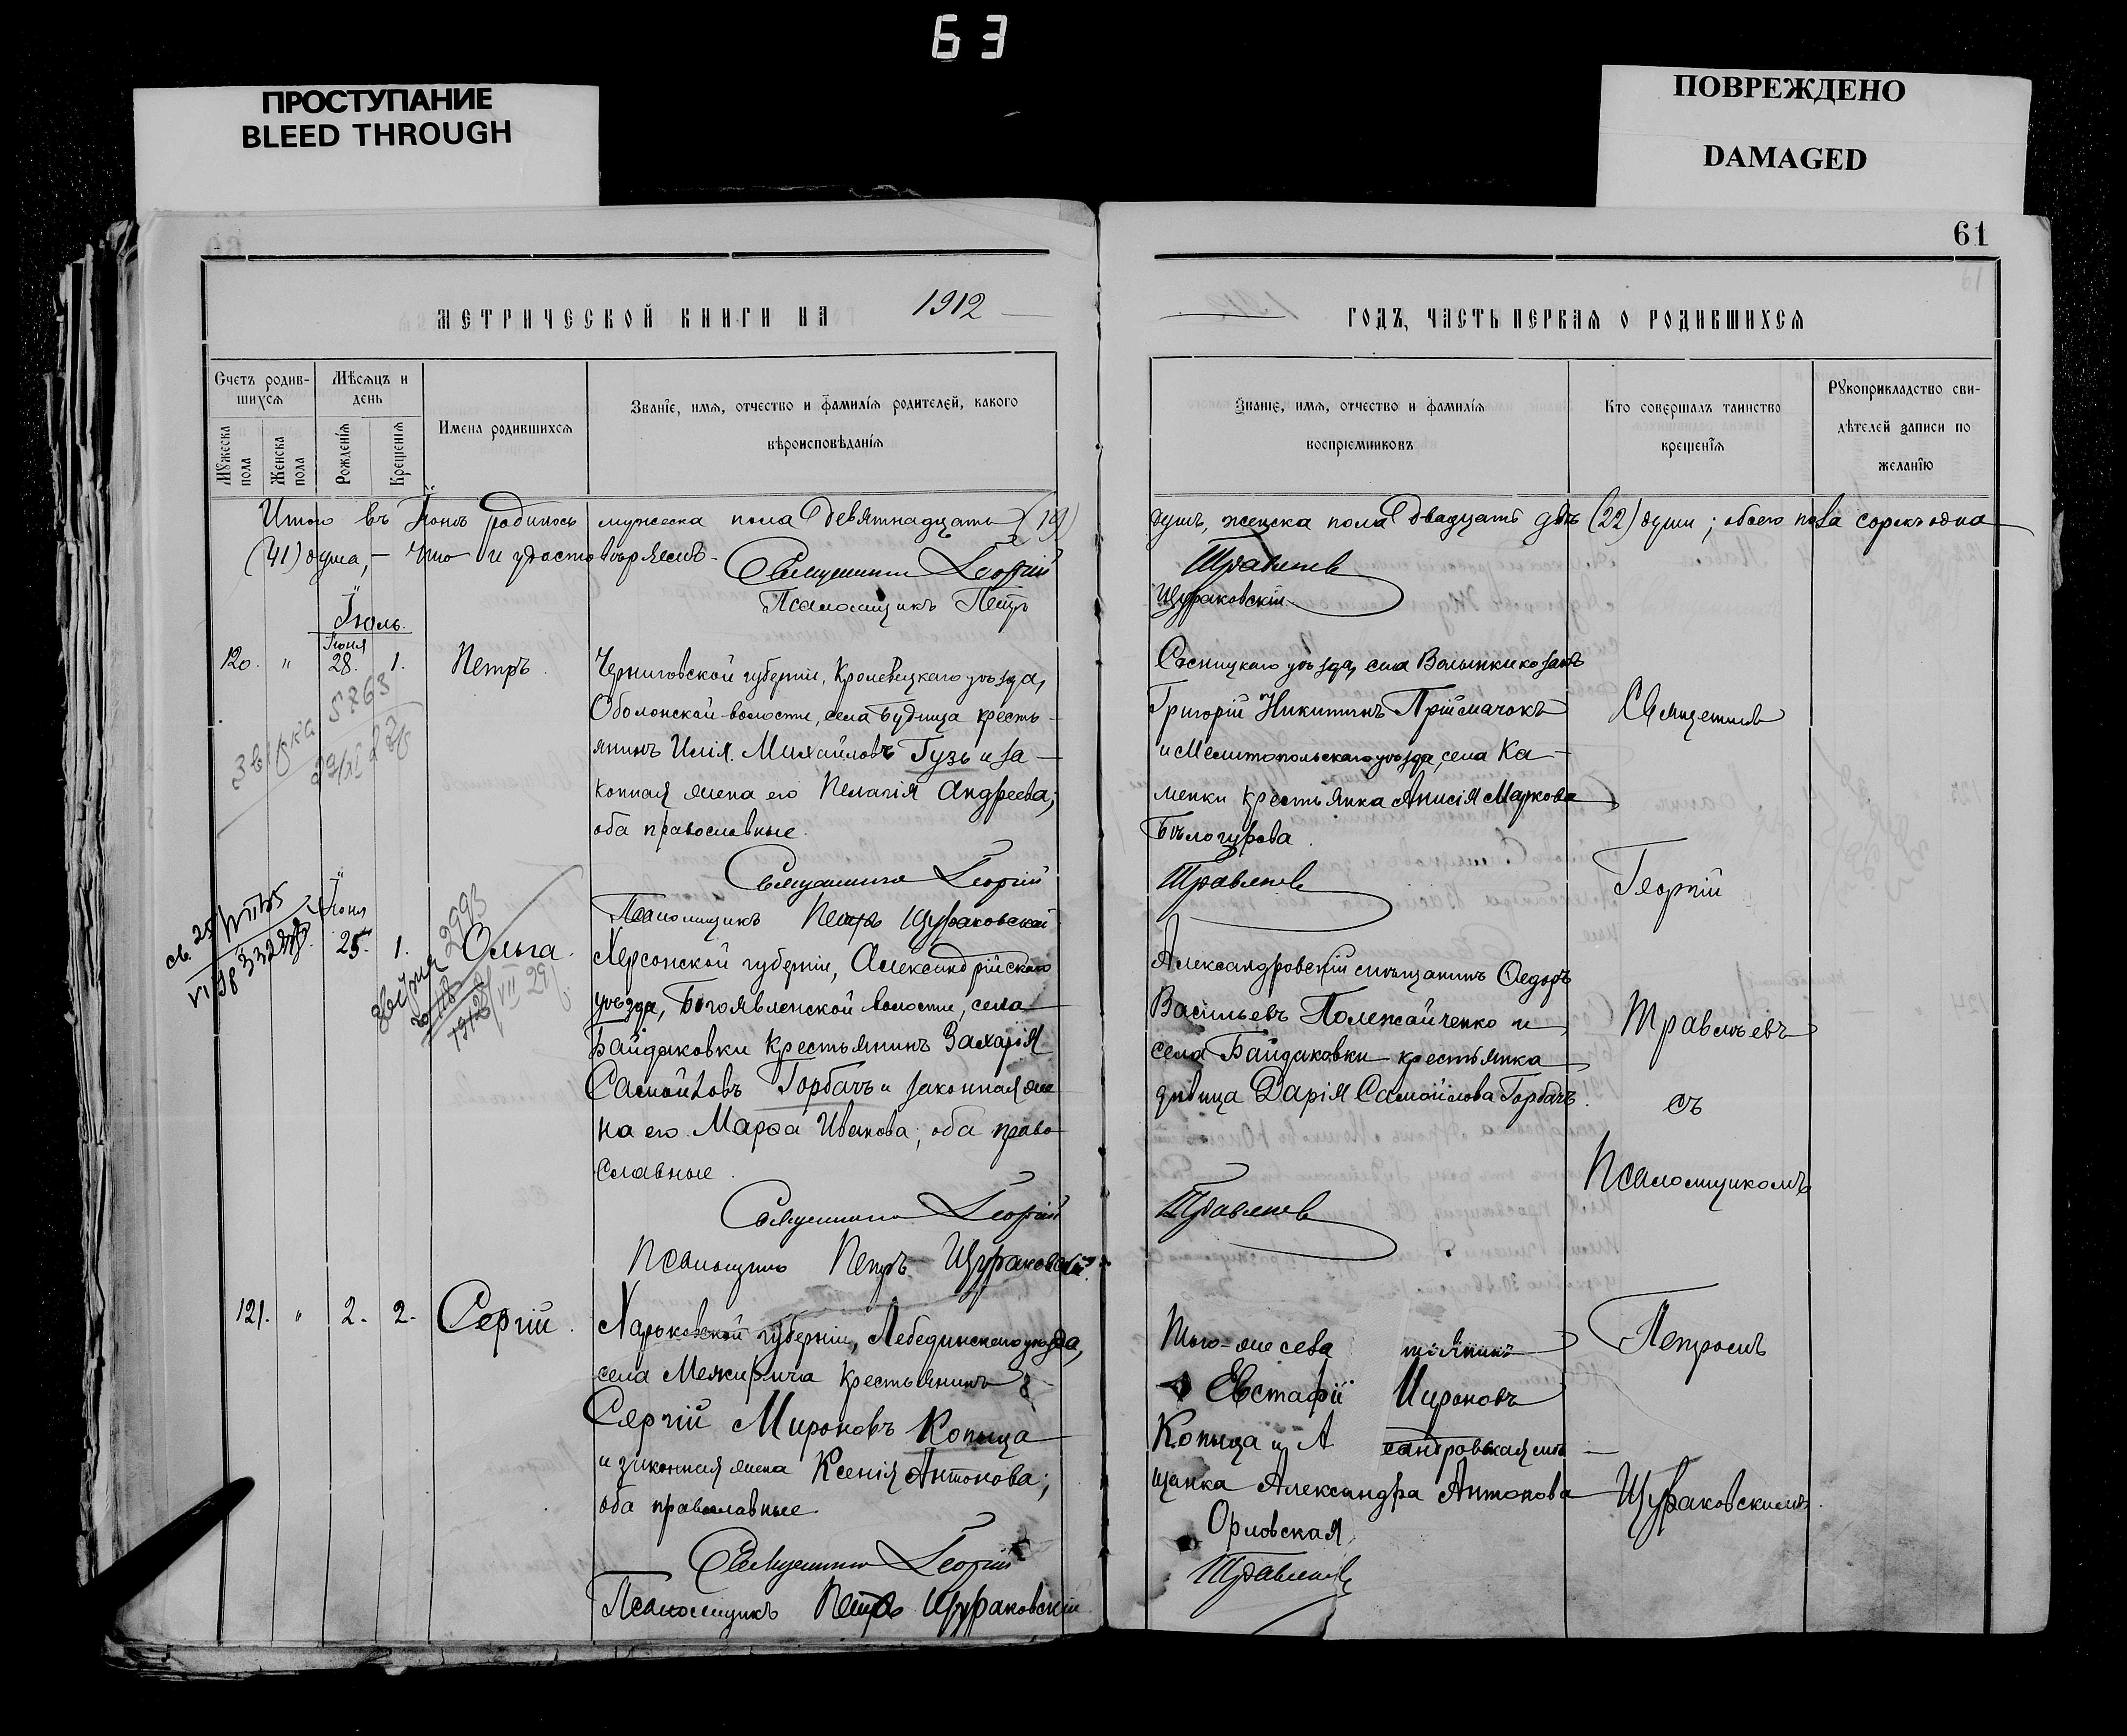 63
ПРОСТУПАНИЕ
BLEED THROUGH
ПОВРЕЖДЕНО
DAMAGED
61
МЕТРИЧЕСКОЙ КНИГИ НА 1912
ГОДЪ, ЧАСТЬ ПЕРВАЯ О РОДИВШИХСЯ
Счетъ родив-
шихся
Мужеска
пола
Женска
пола
Мѣсяцъ и
день
Рожденія
Крещенія
Имена родившихся
Званіе, имя, отчество и фамилія родителей, какого
вѣроисповѣданія
Званіе, имя, отчество и фамилія
воспріемниковъ
Кто совершалъ таинство
крещенія
Рукоприкладство сви-
дѣтелей записи по
желанію
Итого въ Іюнѣ родилось мужеска пола девятнадцать (19)
душъ, женска пола двадцать двѣ (22) души; обоего пола сорокъ одна
(41) душа, – что и удостовѣряемъ –
Священникъ Георгій
Травлѣевъ
Псаломщикъ Петръ
Щураковскій
Іюль.
Іюня
120. " 28. 1. Петръ.
Черниговской губерніи, Кролевецкаго уѣзда,
Оболонской волости, села Будища кресть-
янинъ Илія Михайловъ Гузь и за-
конная жена его Пелагія Андреева;
оба православные.
Священникъ Георгій
Псаломщикъ Петръ Щураковскій
Сосницкаго уѣзда, села Волынки козакъ
Григорій Никитинъ Пріймачокъ
и Мелитопольскаго уѣзда, села Ка-
менки крестьянка Анисія Маркова
Бѣлогурова.
Травлѣевъ
Іюня
25. 1. Ольга.
Херсонской губерніи, Александрійскаго
уѣзда, Богоявленской волости, села
Байдаковки крестьянинъ Захарія
Самойловъ Горбачъ и законная же-
на его Марѳа Иванова; оба право-
славные.
Священникъ Георгій
Псаломщикъ Петръ Щураковскій
Александровскій мѣщанинъ Ѳедоръ
Васильевъ Полежайченко и
села Байдаковки крестьянка
дѣвица Дарія Самойлова Горбачъ.
Травлѣевъ
121. " 2. 2. Сергій.
Харьковской губерніи, Лебединскаго уѣзда,
села Межирича крестьянинъ
Сергій Мироновъ Копыца
и законная жена Ксенія Антонова;
оба православные.
Священникъ Георгій
Псаломщикъ Петръ Щураковскій
Того-же села
Евстафій Мироновъ
Копыца и А сандровская мѣ-
щанка Александра Антонова
Орловская
Травлѣевъ
Священникъ
Георгій
Травлѣевъ
съ
Псаломщикомъ
Петромъ
Щураковскимъ.